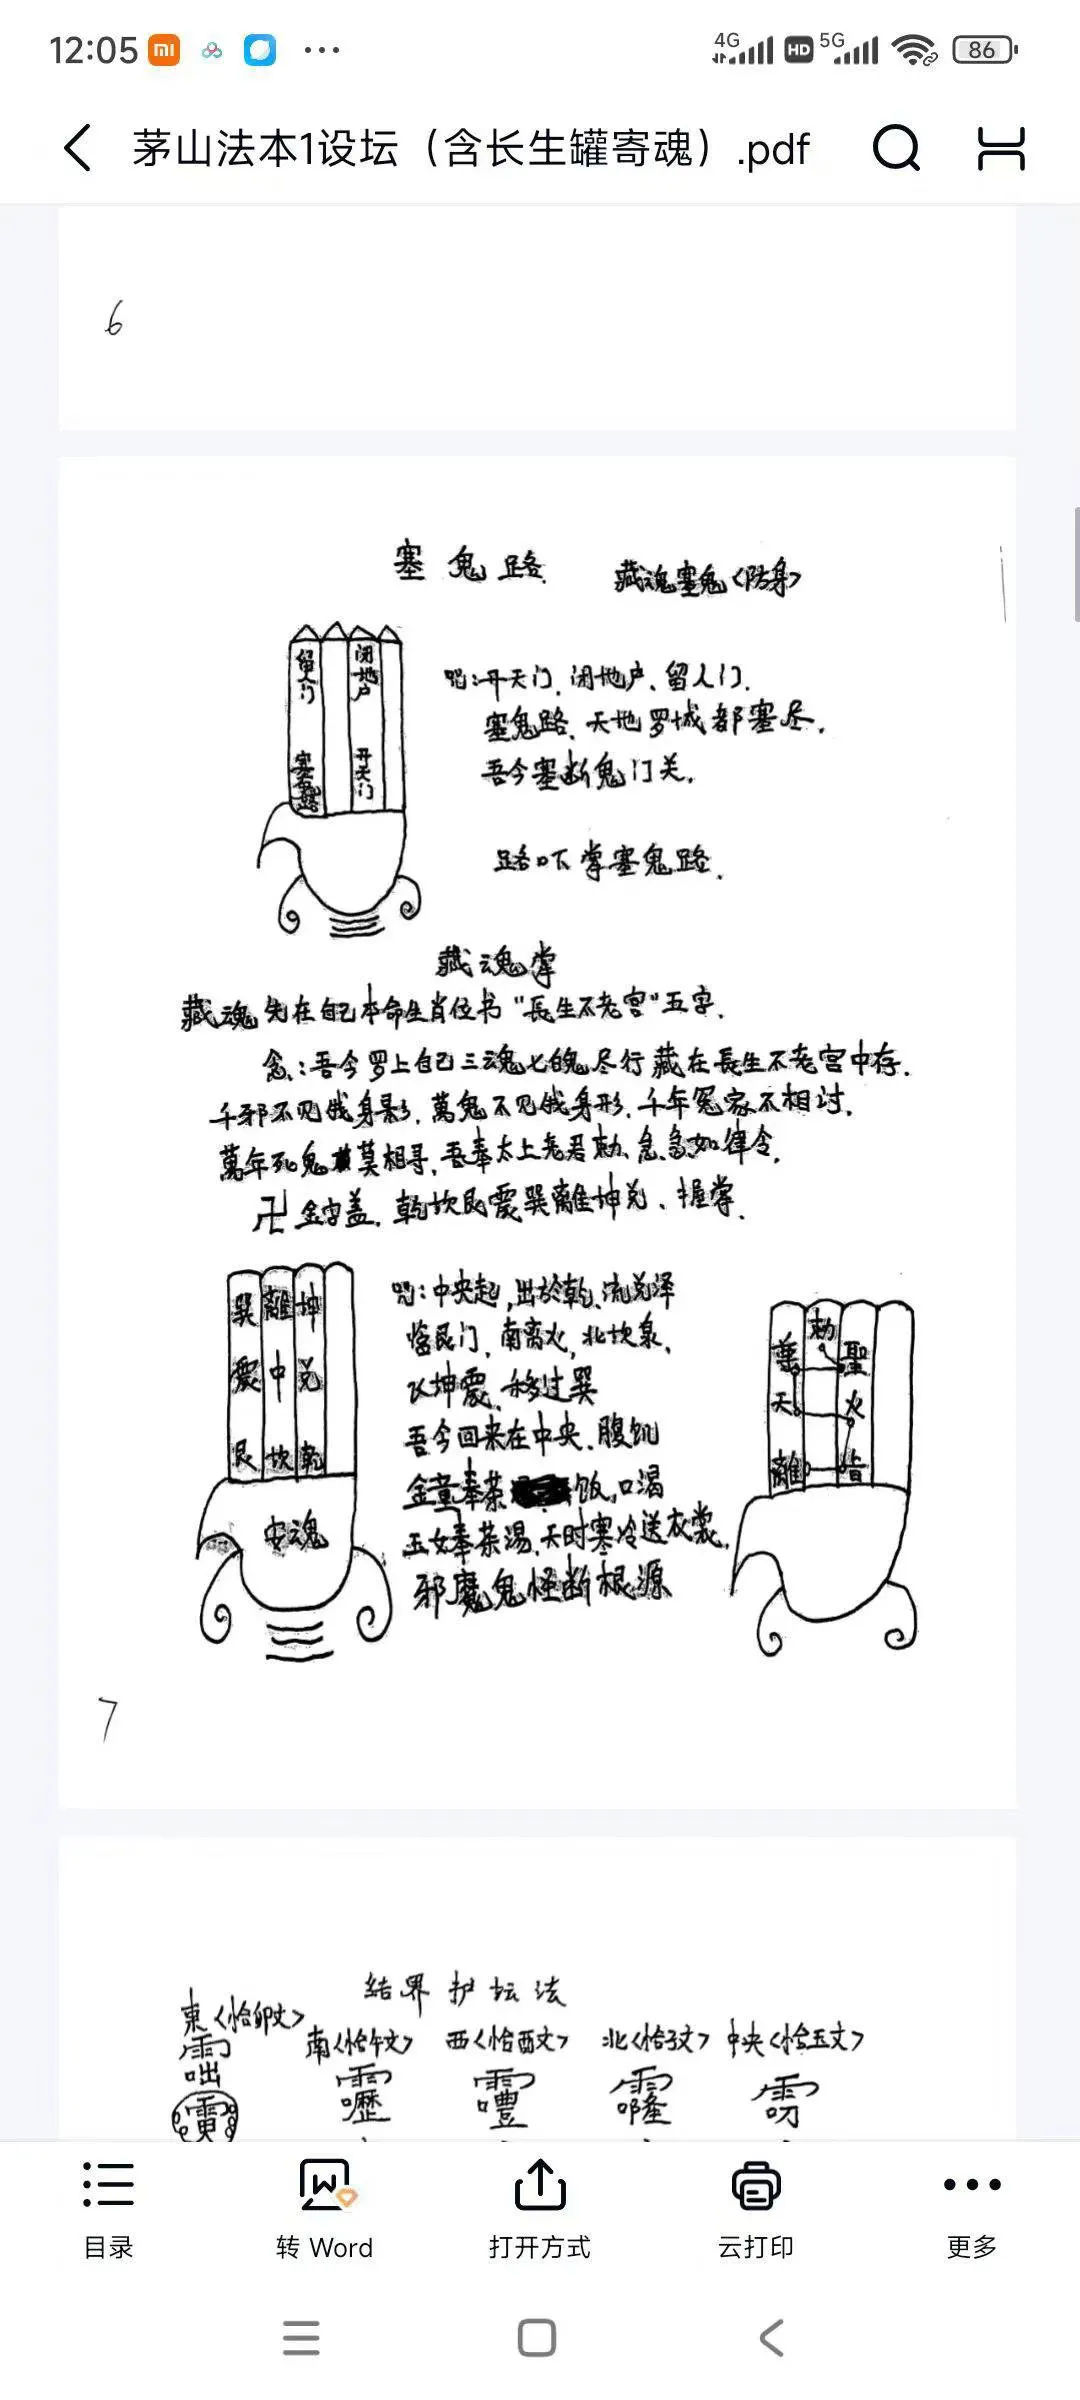 12:05
4G HD 5G 86
茅山法本1设坛（含长生罐寄魂）.pdf
6
塞鬼路
藏魂塞鬼<防身>
留人门
闭地户
塞鬼路
开天门
咒:开天门.闭地户、留人门.
塞鬼路.天地罗城都塞尽.
吾今塞断鬼门关.
路吓掌塞鬼路.
藏魂掌
藏魂先在自己本命生肖位书“長生不老宫”五字.
念:吾今罗上自己三魂七魄尽行藏在長生不老宫中存.
千邪不见我身影.萬鬼不见我身形.千年冤家不相讨.
萬年死鬼莫相寻.吾奉太上老君勅.急急如律令.
卍 金字盖.乾坎艮震巽離坤兑、握掌.
巽離坤
震中兑
艮坎乾
安魂
咒:中央起,出於乾、流兑泽
临艮门,南离火,北坎泉,
坤震.移过巽
吾今回来在中央.腹饥
金童奉茶饭,口渴
玉女奉茶湯.天时寒冷送衣裳.
邪魔鬼怪断根源
勅
聖
天火
離
7
结界护坛法
東<恰卯文>
南<恰午文>
西<恰酉文>
北<恰子文>
中央<恰五文>
目录
转 Word
打开方式
云打印
更多